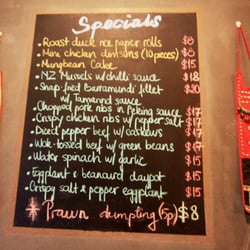 Specials
• Roast duck rice paper rolls $8
• Mini chicken dimsims (10 pieces) $8
• Mungbean Cake $15
• NZ Mussels w/ chilli sauce $18
• Snap-fried Barramundi fillet $20
w/ Tamarind sauce
• Chopped pork ribs in Peking sauce $17
• Crispy chicken ribs w/ pepper salt $17
• Diced pepper beef w/ cashews $17
• Wok-tossed beef w/ green beans $17
• Water spinach w/ garlic $15
• Eggplant & beancurd claypot $15
• Crispy salt & pepper eggplant $15
Prawn dumpling (5p) $8